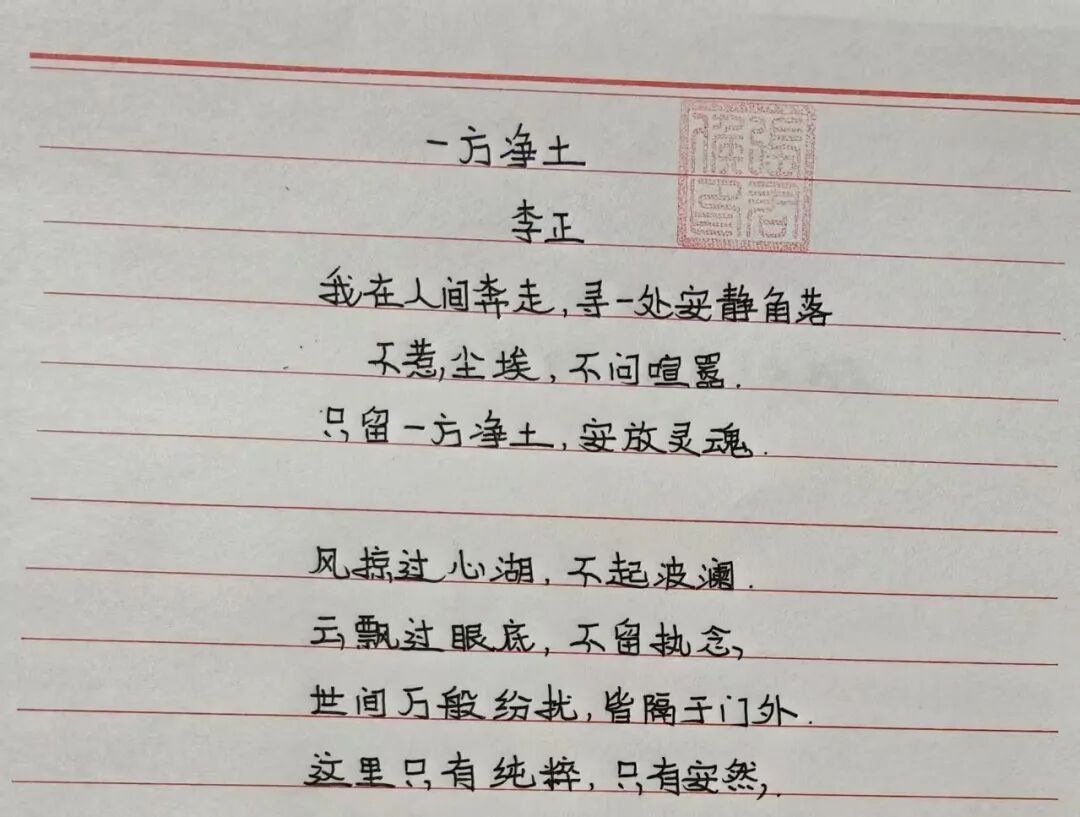 一方净土
李正
我在人间奔走,寻一处安静角落
不惹尘埃,不问喧嚣.
只留一方净土,安放灵魂.
风掠过心湖,不起波澜.
云飘过眼底,不留执念,
世间万般纷扰,皆隔于门外.
这里只有纯粹,只有安然,